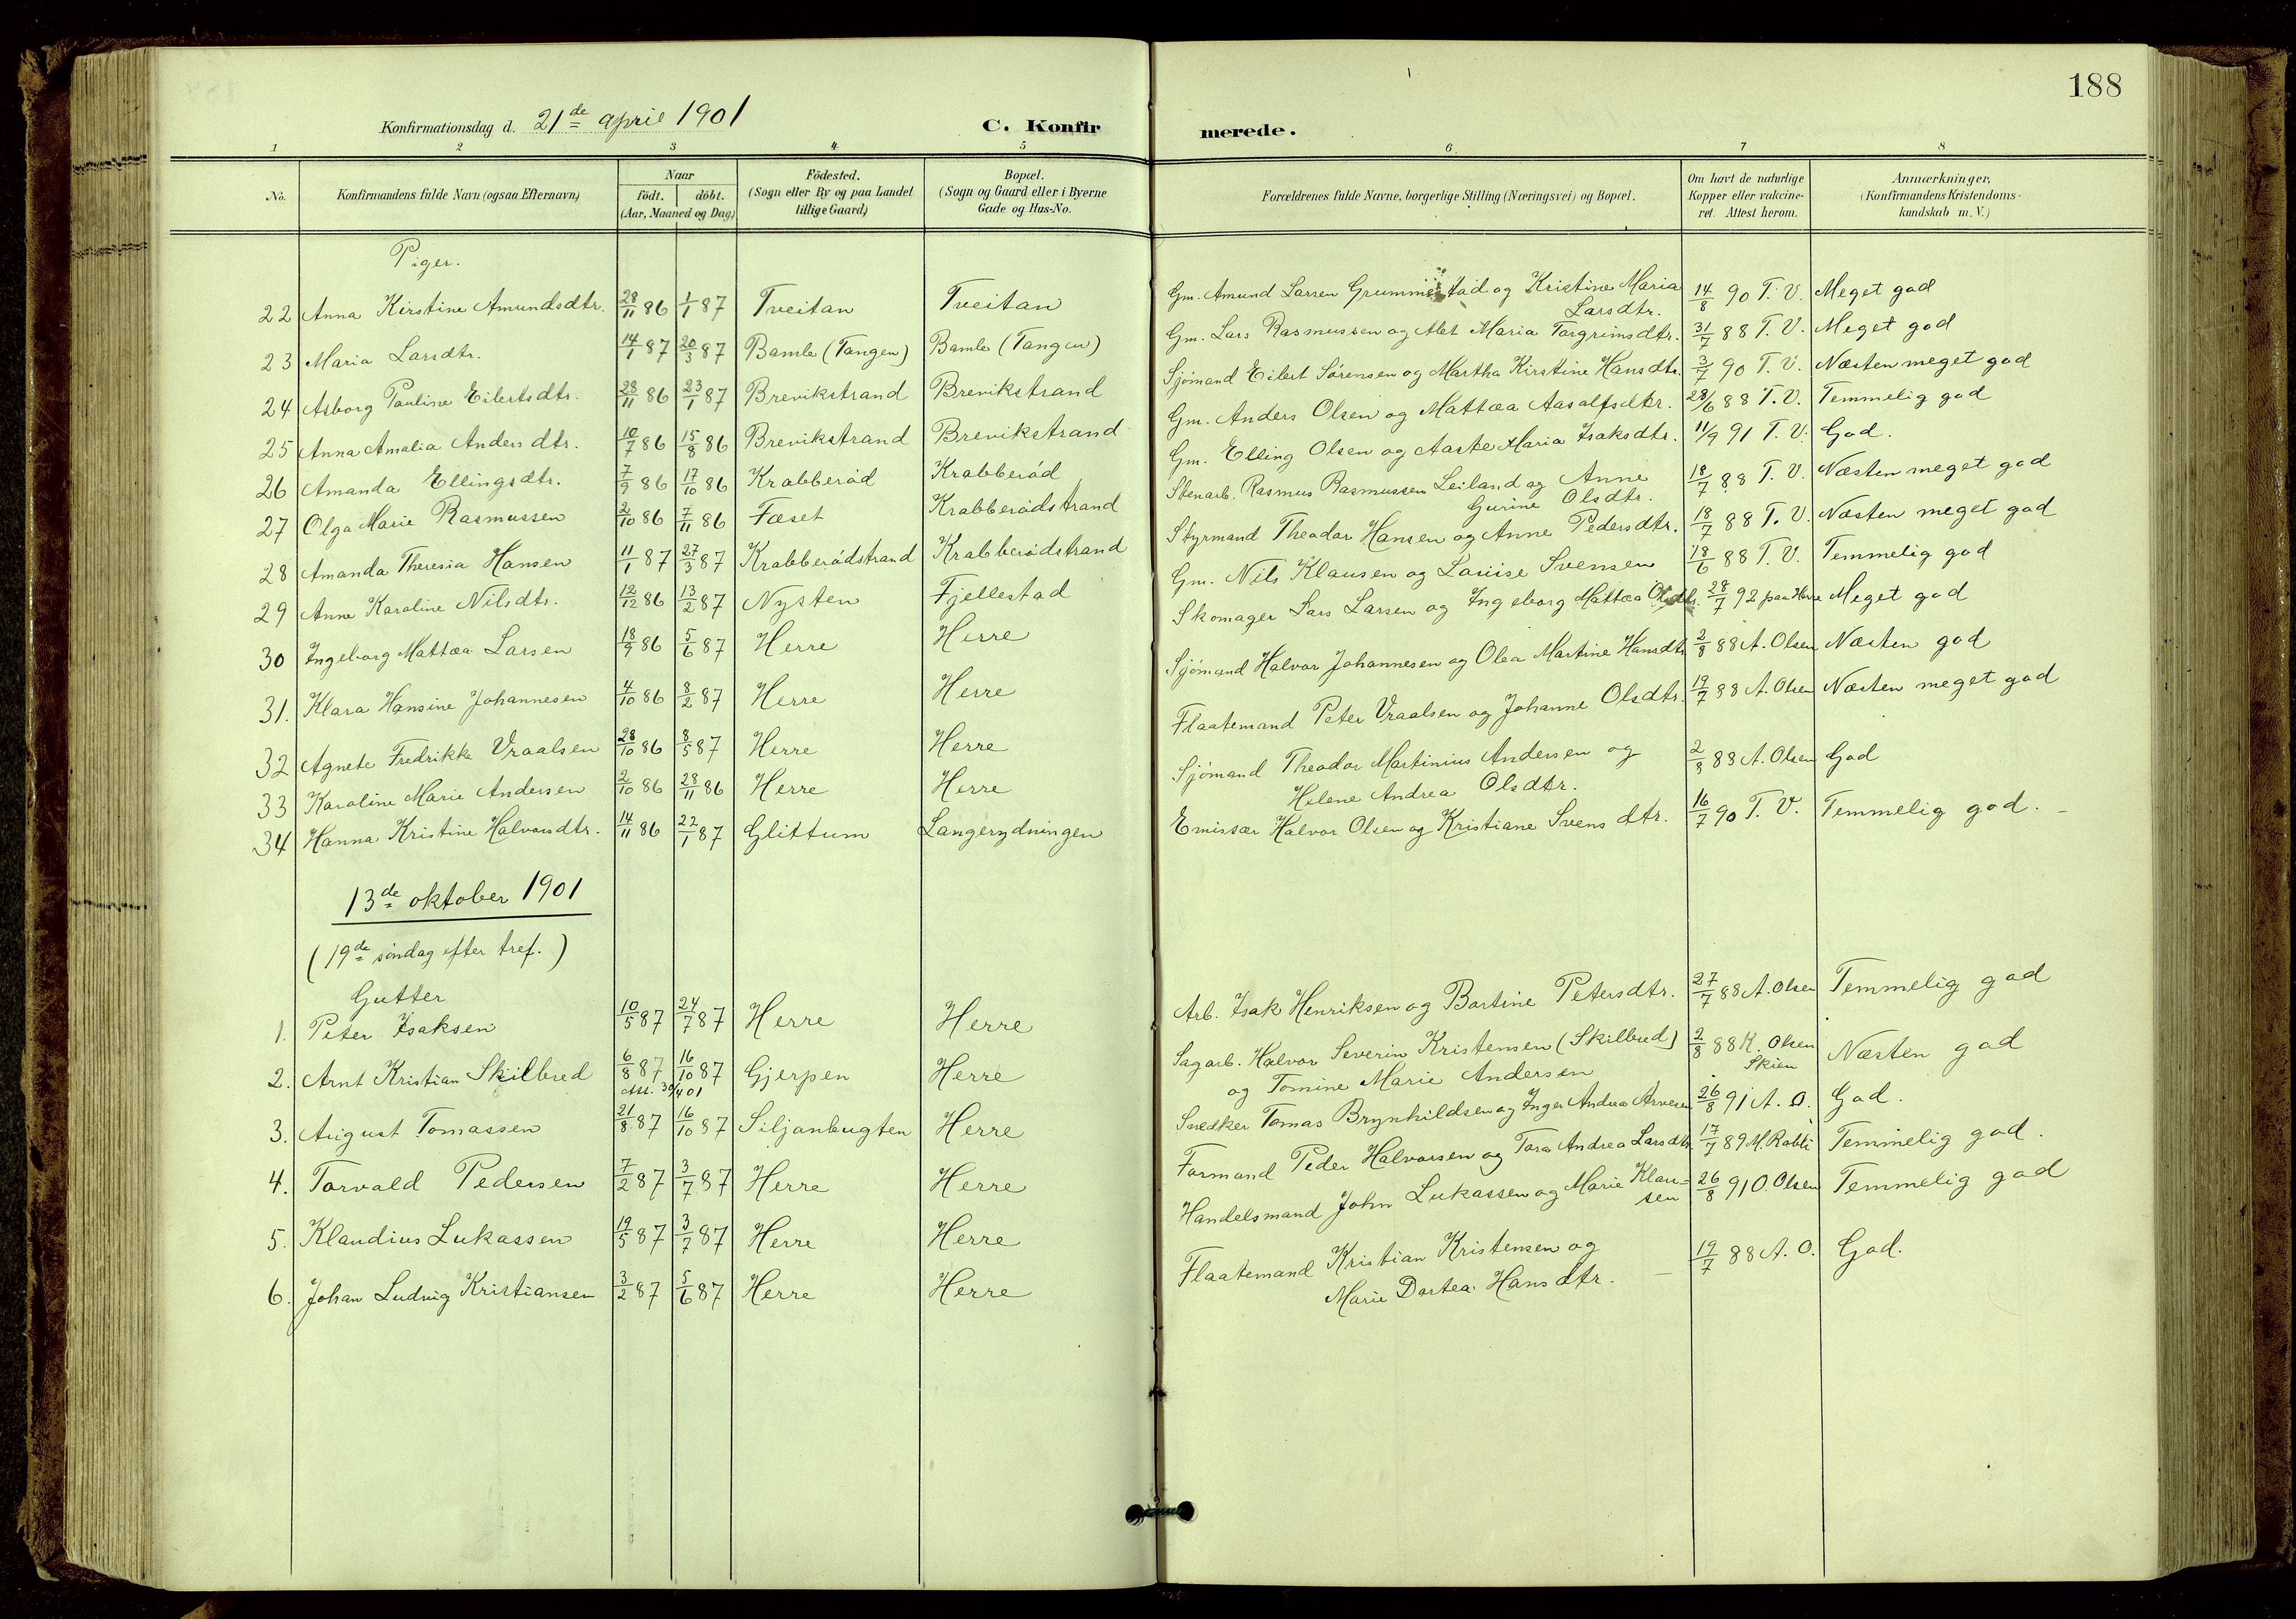 188
Konfirmationsdag d. 21de april 1901 C. Konfirmerede.
1 2 3 4 5 6 7 8
No. Konfirmandens fulde Navn (ogsaa Efternavn) Naar födt. döbt. (Aar, Maaned og Dag) Födested. (Sogn eller By og paa Landet tillige Gaard) Bopæl. (Sogn og Gaard eller i Byerne Gade og Hus-No. Forældrenes fulde Navne, borgerlige Stilling (Næringsvei) og Bopæl. Om havt de naturlige Kopper eller vakcineret. Attest herom. Anmærkninger. (Konfirmandens Kristendomskundskab m. V.)
Piger.
22 Anna Kirstine Amundsdtr. 28/11 86 1/1 87 Tveitan Tveitan Gm. Amund Larsen Grummestad og Kristine Maria Larsdtr. 14/8 90 T. V. Meget god
23 Maria Larsdtr. 14/1 87 20/3 87 Bamle (Tangen) Bamle (Tangen) Gm. Lars Rasmussen og Alet Maria Torgrimsdtr. 31/7 88 T. V. Meget god
24 Asborg Pauline Eilertsdtr. 28/11 86 23/1 87 Brevikstrand Brevikstrand Sjömand Eilert Sörensen og Martha Kirstine Hansdtr. 3/7 90 T. V. Næsten meget god
25 Anna Amalia Andersdtr. 10/7 86 15/8 86 Brevikstrand Brevikstrand Gm. Anders Olsen og Mattæa Aasolfsdtr. 28/6 88 T. V. Temmelig god
26 Amanda Ellingsdtr. 7/9 86 17/10 86 Krabberöd Krabberöd Gm. Elling Olsen og Aaste Maria Isaksdtr. 11/9 91 T. V. God.
27 Olga Marie Rasmussen 2/10 86 7/11 86 Fæset Krabberödstrand Stenarb. Rasmus Rasmussen Leiland og Anne Gurine Olsdtr. 18/7 88 T. V. Næsten meget god
28 Amanda Theresia Hansen 11/1 87 27/3 87 Krabberödstrand Krabberödstrand Styrmand Theodor Hansen og Anne Pedersdtr. 18/7 88 T. V. Næsten meget god
29 Anne Karoline Nilsdtr. 12/12 86 13/2 87 Nysten Fjellestad Gm. Nils Klausen og Louise Svensen 18/6 88 T. V. Temmelig god
30 Ingeborg Mattæa Larsen 18/9 86 5/6 87 Herre Herre Skomager Lars Larsen og Ingeborg Mattæa Olsdtr. 28/7 92 paa Herre Meget god
31. Klara Hansine Johannesen 4/10 86 8/2 87 Herre Herre Sjömand Halvor Johannesen og Olea Martine Hansdtr. 2/8 88 A. Olsen Næsten god
32 Agnete Fredrikke Vraalsen 28/10 86 8/5 87 Herre Herre Flaatemand Peter Vraalsen og Johanne Olsdtr. 19/7 88 A. Olsen Næsten meget god
33 Karoline Marie Andersen 2/10 86 28/11 86 Herre Herre Sjömand Theodor Martinius Andersen og Helene Andrea Olsdtr. 2/8 88 A. Olsen God
34 Hanna Kristine Halvorsdtr. 14/11 86 22/1 87 Glittum Langerydningen Emissær Halvor Olsen og Kristiane Svensdtr. 16/7 90 T. V. Temmelig god.
13de oktober 1901
(19de söndag efter tref.)
Gutter
1. Peter Isaksen 10/5 87 24/7 87 Herre Herre Arb. Isak Henriksen og Bortine Petersdtr. 27/7 88 A. Olsen Temmelig god
2. Arnt Kristian Skilbred 6/8 87 16/10 87 Att. 30/4 01 Gjerpen Herre Sagarb. Halvor Severin Kristensen (Skilbred) og Tomine Marie Andersen 2/8 88 K. Olsen Skien Næsten god
3. August Tomassen 21/8 87 16/10 87 Siljanbugten Herre Snedker Tomas Brynhildsen og Inger Andrea Arvesen 26/8 91 A. O. God.
4. Torvald Pedersen 7/2 87 3/7 87 Herre Herre Formand Peder Halvorsen og Tora Andrea Larsdtr. 17/7 89 M. Rabli Temmelig god.
5. Klaudius Lukassen 19/5 87 3/7 87 Herre Herre Handelsmand John Lukassen og Marie Klausen 26/8 91 O. Olsen Temmelig god
6. Johan Ludvig Kristiansen 3/2 87 5/6 87 Herre Herre Flaatemand Kristian Kristensen og Marie Dortea Hansdtr. 19/7 88 A. O. God.